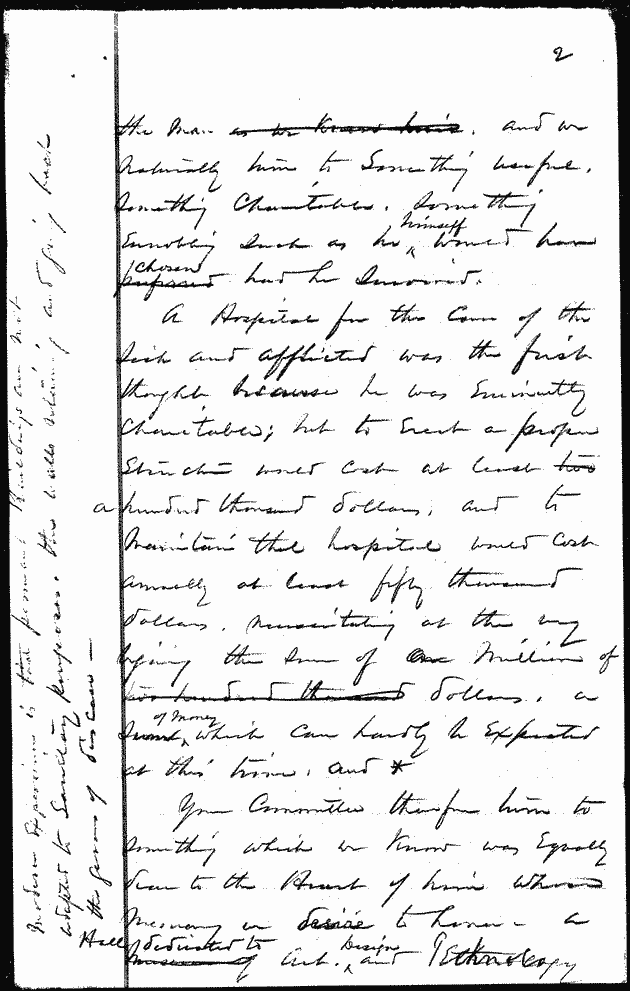 2
the man as we knew him. and we
naturally turn to Something useful.
Something Charitable. Something
himself
Ennobling such as he would have
chosen
preferred had he survived.
A Hospital for the Care of the
sick and afflicted was the first
thought because he was Eminently
Charitable; but to Erect a proper
Structure would cost at least two
a hundred thousand dollars, and to
Maintain the hospital would cost
annually at least fifty thousand
dollars. necessitating at the very
begining the sum of One Million of
two hundred thousand dollars. a
of Money
Sum which can hardly be Expected
at this time. and *
Your Committee therefore turn to
something which we know was Equally
dear to the Heart of him whose
Memory we desire to honor - a
Hall dedicated to Design
museum of Art. and Technology
Modern Experience is that permanent Buildings are not
adapted to Sanitary purposes. the walls retaining and giving back
the germs of disease -